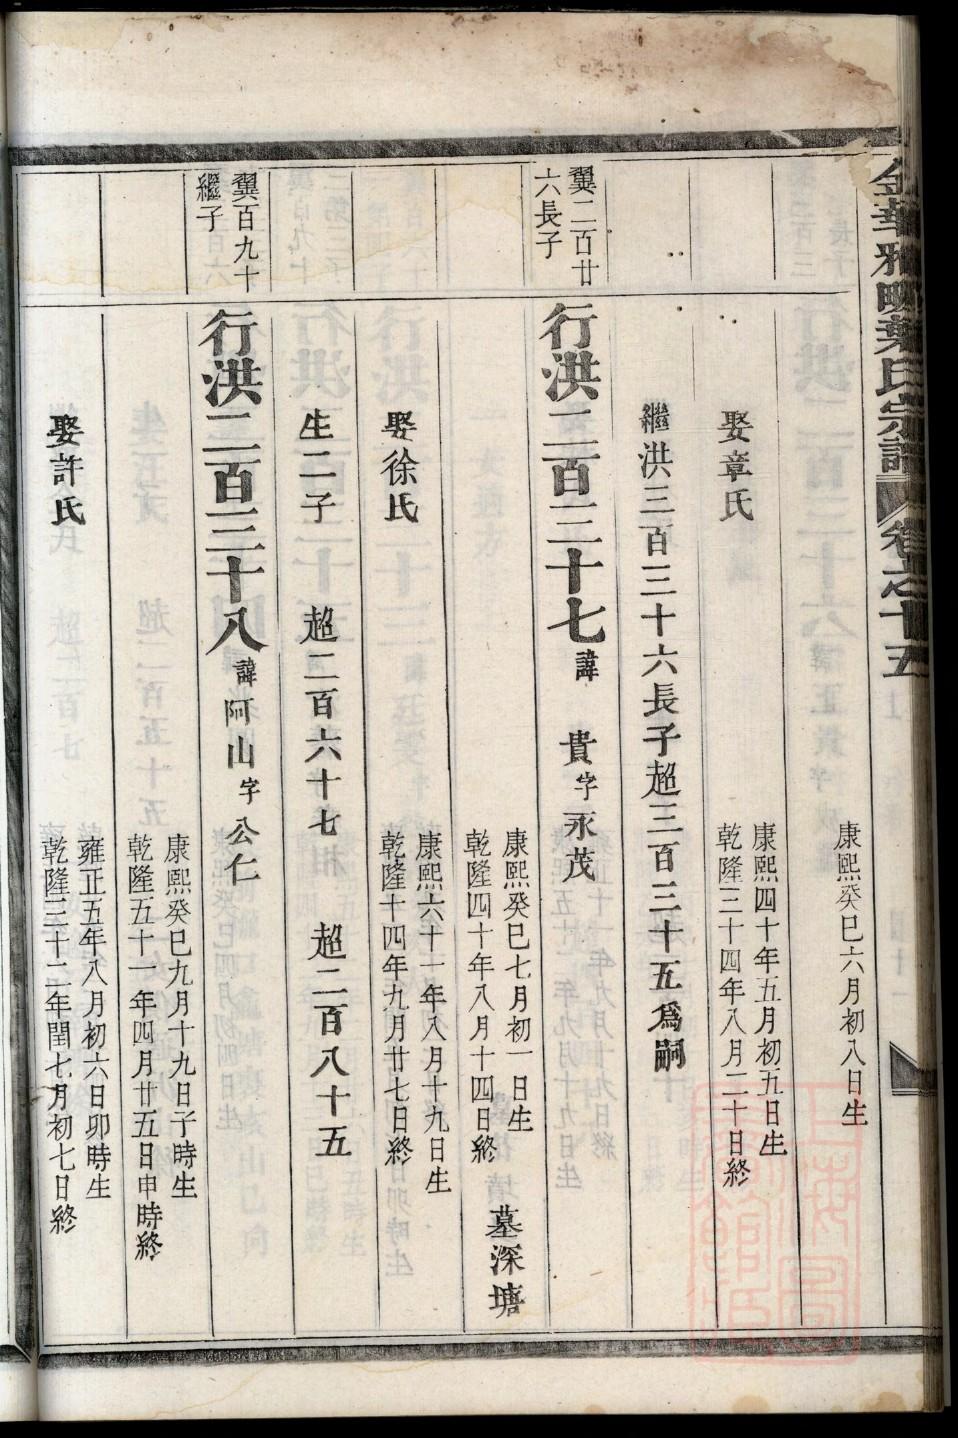 金華雅畈葉氏宗譜 卷之十五
康熙癸巳六月初八日生
娶章氏
康熙四十年五月初五日生
乾隆三十四年八月二十日終
繼洪三百三十六長子超三百三十五爲嗣
翼二百廿
六長子
行洪二百三十七 諱 貴 字 永茂
康熙癸巳七月初一日生
乾隆四十年八月十四日終
墓深塘
娶徐氏
康熙六十一年八月十九日生
乾隆十四年九月廿七日終
生二子 超二百六十七 超二百八十五
翼百九十
繼子
行洪二百三十八 諱 阿山 字 公仁
康熙癸巳九月十九日子時生
乾隆五十一年四月廿五日申時終
娶許氏
雍正五年八月初六日卯時生
乾隆三十二年閏七月初七日終